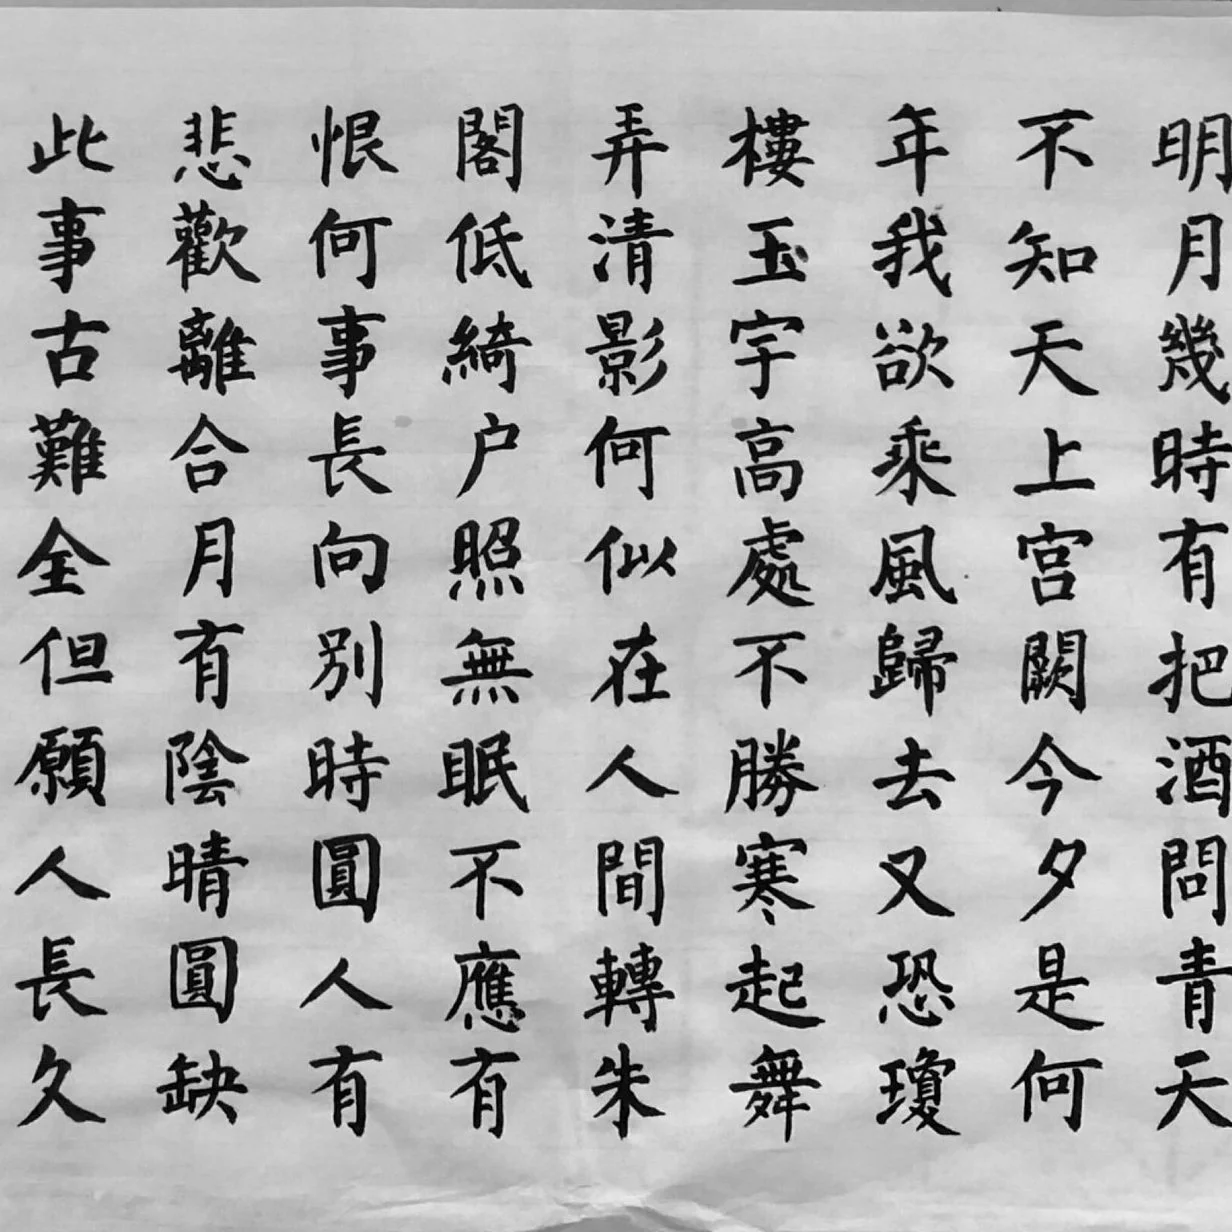 明月幾時有把酒問青天
不知天上宮闕今夕是何
年我欲乘風歸去又恐瓊
樓玉宇高處不勝寒起舞
弄清影何似在人間轉朱
閣低綺户照無眠不應有
恨何事長向别時圓人有
悲歡離合月有陰晴圓缺
此事古難全但願人長久